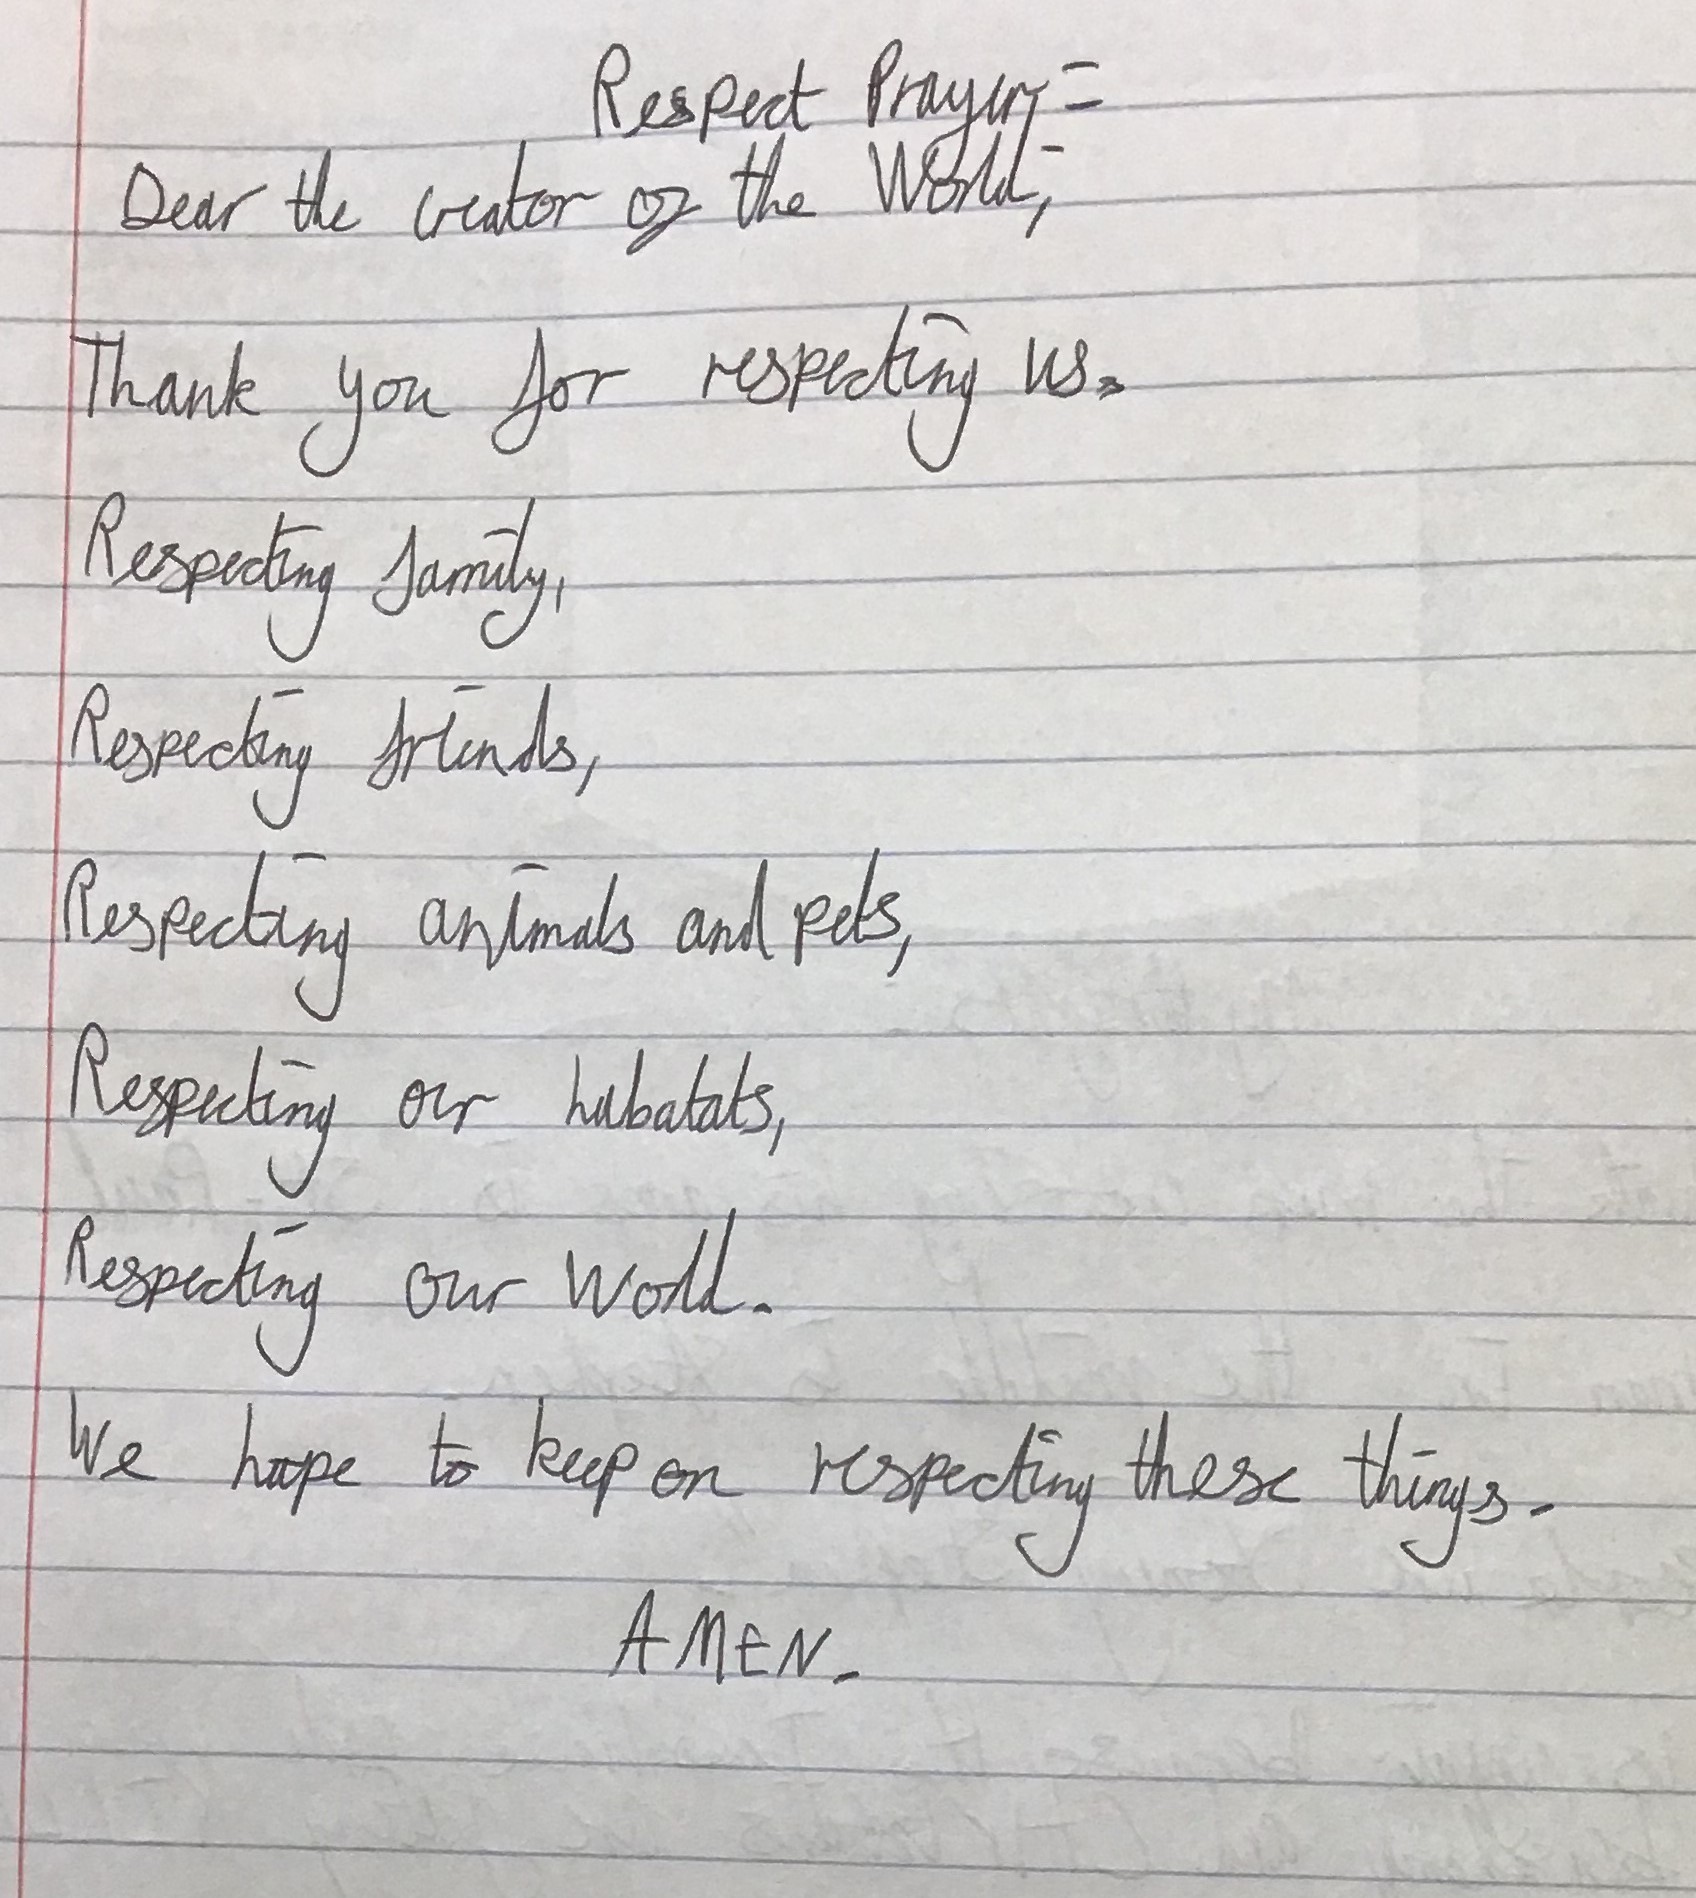 Respect Prayer=
Dear the creator of the World,
Thank you for respecting us.
Respecting family,
Respecting friends,
Respecting animals and pets,
Respecting our habatats,
Respecting our World.
We hope to keep on respecting these things.
AMEN.